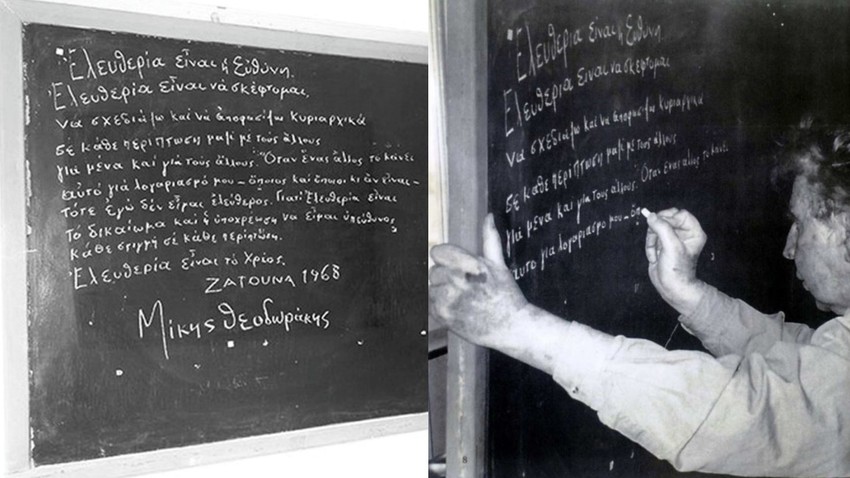 Ἐλευθερία εἶναι ἡ Εὐθύνη.
Ἐλευθερία εἶναι νὰ σκέφτομαι,
νὰ σχεδιάζω καὶ νὰ ἀποφασίζω κυριαρχικὰ
σὲ κάθε περίπτωση μαζὶ μὲ τοὺς ἄλλους
γιὰ μένα καὶ γιὰ τοὺς ἄλλους. Ὅταν ἕνας ἄλλος τὸ κάνει
αὐτὸ γιὰ λογαριασμό μου – ὅποιος καὶ ὅπωσ κι ἂν εἶναι –
τότε ἐγὼ δὲν εἶμαι ἐλεύθερος. Γιατὶ Ἐλευθερία εἶναι
τὸ δικαίωμα καὶ ἡ ὑποχρέωση νὰ εἶμαι ὑπεύθυνος
κάθε στιγμὴ σὲ κάθε περίπτωση.
Ἐλευθερία εἶναι τὸ Χρέος.
ΖΑΤΟΥΝΑ 1968
Μίκης Θεοδωράκης
Ἐλευθερία εἶναι ἡ Εὐθύνη.
Ἐλευθερία εἶναι νὰ σκέφτομαι
νὰ σχεδιάζω καὶ νὰ ἀποφασίζω κυριαρχικὰ
σὲ κάθε περίπτωση μαζὶ μὲ τοὺς ἄλλους
γιὰ μένα καὶ γιὰ τοὺς ἄλλους. Ὅταν ἕνας ἄλλος τὸ κάνει
αὐτὸ γιὰ λογαριασμό μου – ὅπ
8